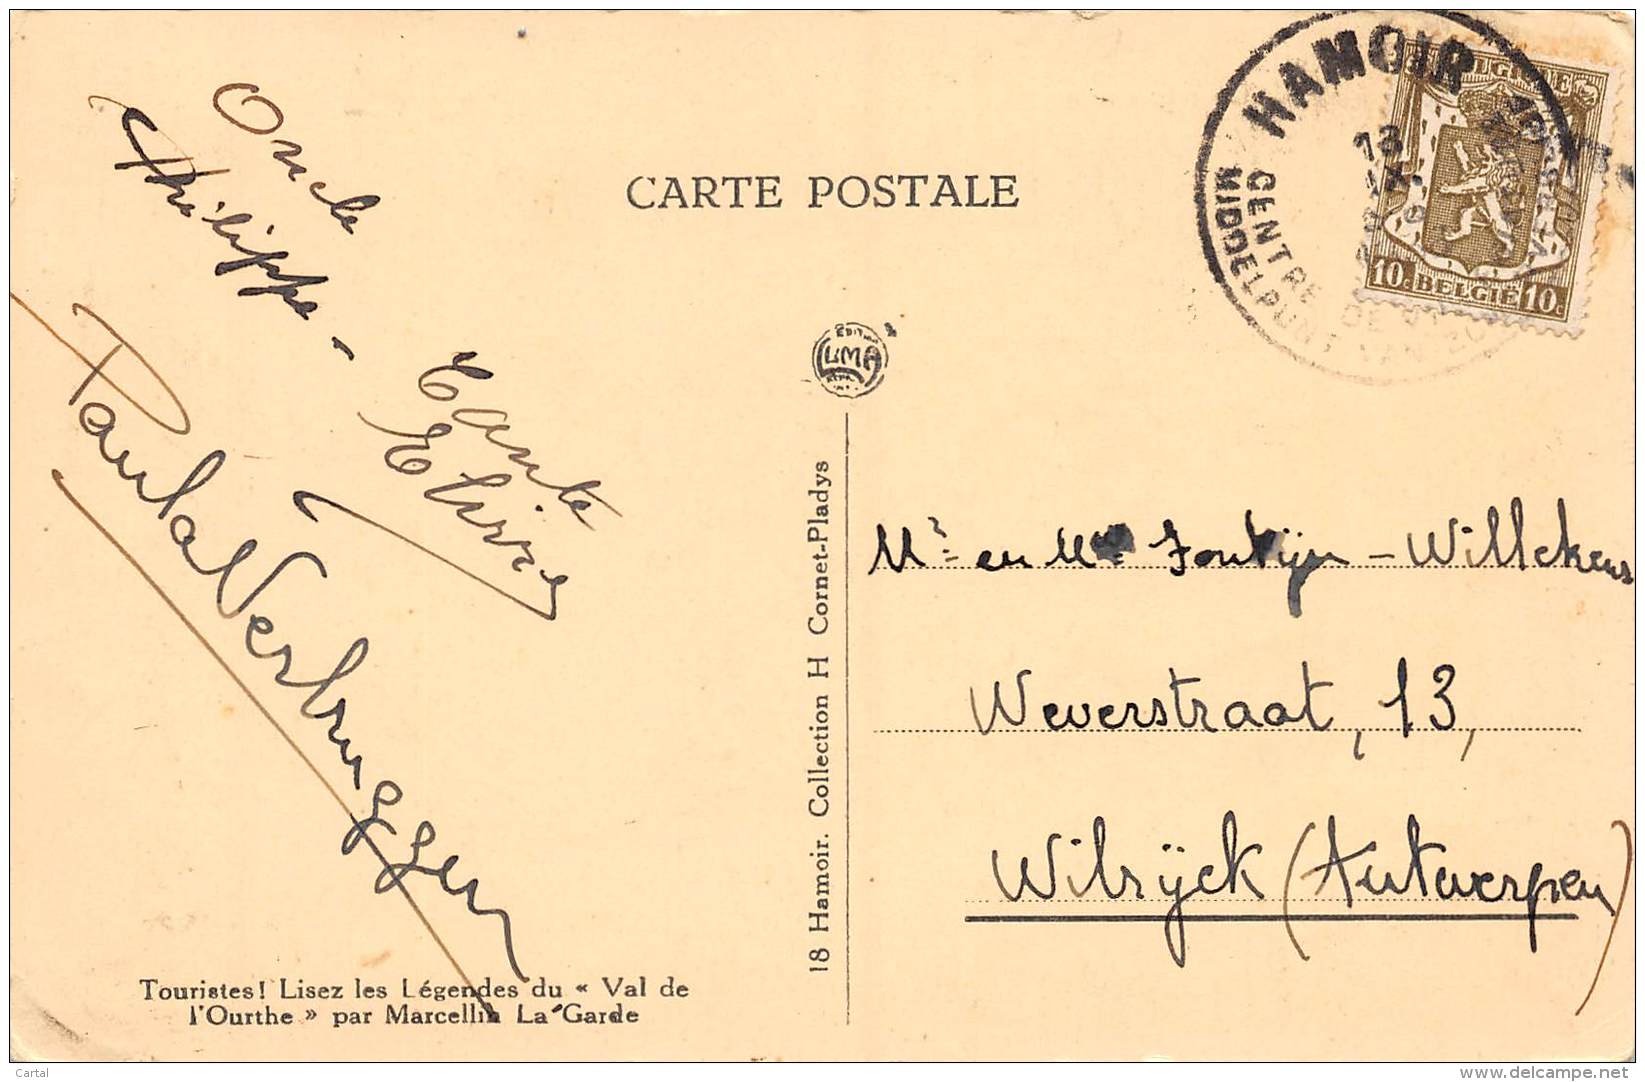 CARTE POSTALE
HAMOIR
CENTRE DE
MIDDELPUNT VAN
10c BELGIË 10c
LMA
Oncle
Philippe -
Tante
Elvire
Paula Verbruggen
18 Hamoir. Collection H Cornet-Pladys
Mr en Fonkijn - Willekens
Weverstraat, 13,
Wilrijck (Antwerpen)
Touristes! Lisez les Légendes du « Val de
l'Ourthe » par Marcellin La Garde
Cartal
www.delcampe.net